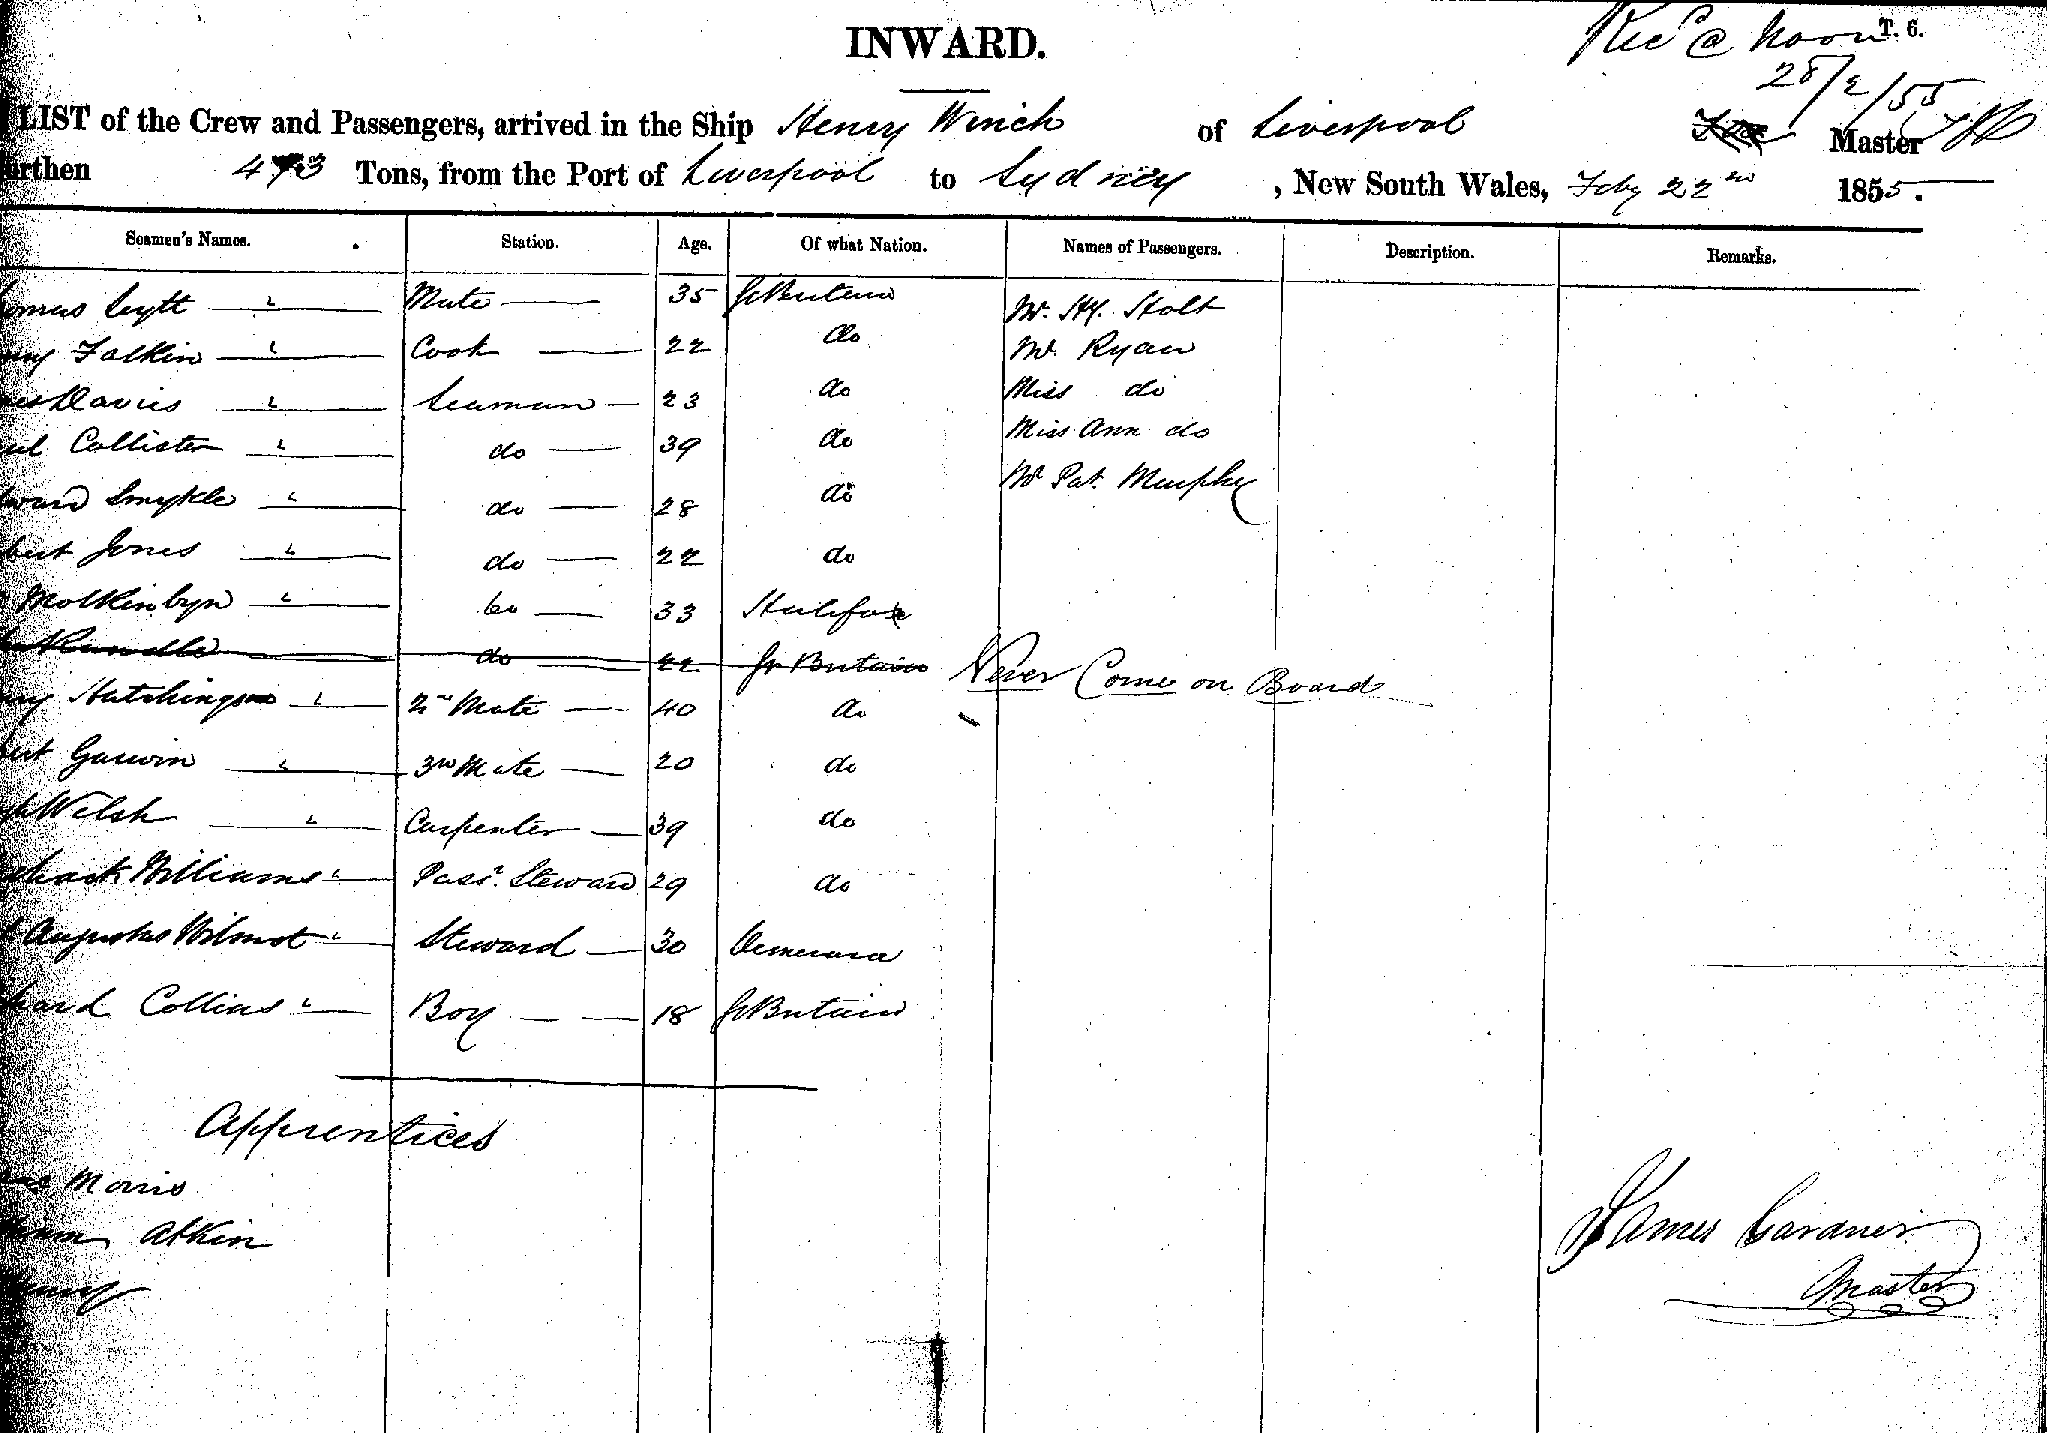 T. 6.
Rec @ Noon
28/2/55
INWARD.
LIST of the Crew and Passengers, arrived in the Ship Henry Winch of Liverpool Master
urthen 4 3 Tons, from the Port of Liverpool to Sydney , New South Wales, Feby 22nd 1855.
Seamen's Names. Station. Age. Of what Nation. Names of Passengers. Description. Remarks.
Mate 35 Gt Britain Mr. Hy. Holt
Falkin " Cook 22 do Mr. Ryan
Davies " Seaman 23 do Miss do
Collister " do 39 do Miss Ann do
Smykle " do 28 do Mr Pat. Murphy
Jones " do 22 do
Molkinbyn " do 33 Halifax
Rundle do 22 Gr Britain Never Come on Board
Hutchingson " 2nd Mate 40 do
Garwin " 3rd Mate 20 do
Welsh " Carpenter 39 do
Williams " Passr. Steward 29 do
Augustus Wilmot " Steward 30 Demerara
Collins " Boy 18 Gt Britain
Apprentices
Morris
Atkin
James Gardner
Master